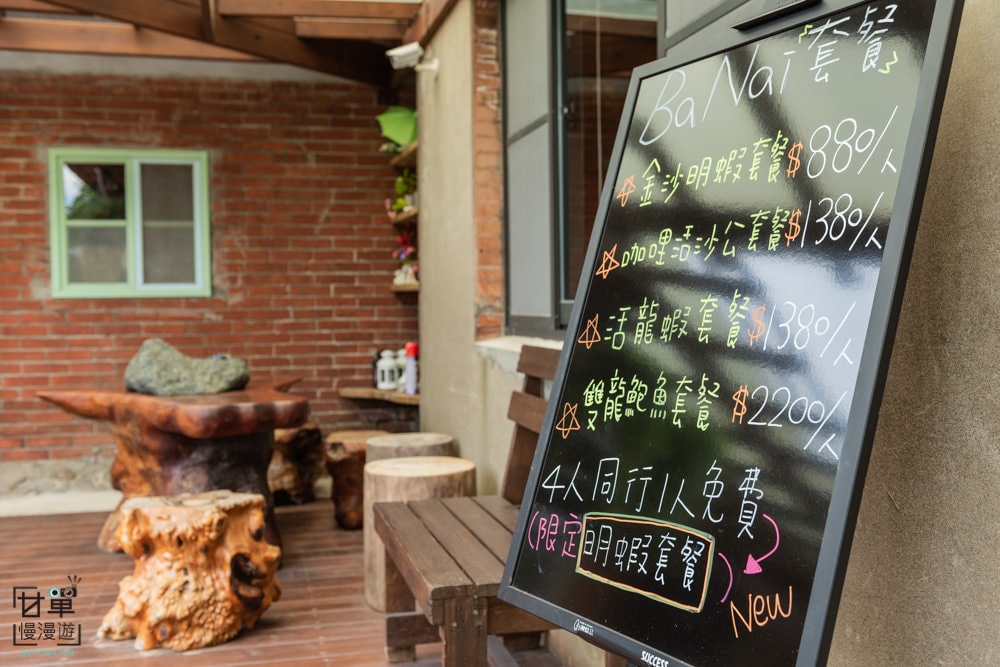 BaNai『套餐』
☆金沙明蝦套餐$880/人
☆咖哩活沙公套餐$1380/人
☆活龍蝦套餐$1380/人
☆雙龍鮑魚套餐$2200/人
4人同行1人免費
(限定明蝦套餐)
New
SUCCESS
廿單
慢漫遊